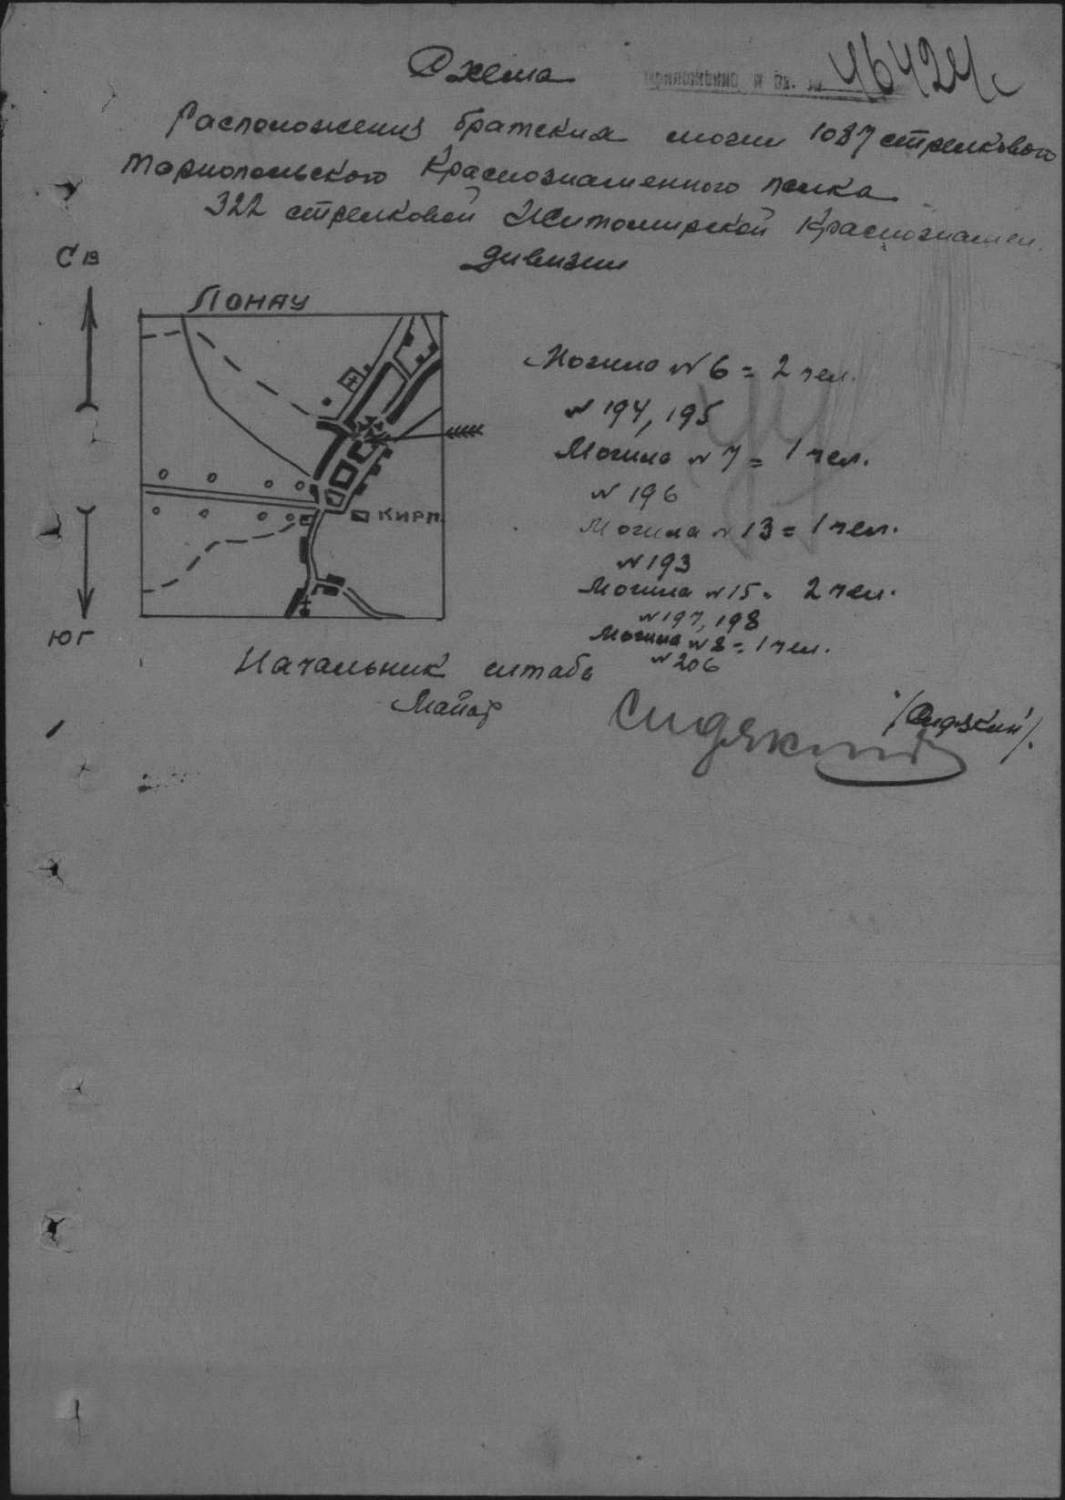 Схема
приложение к вх. № 46424с
Расположения братских могил 1087 стрелкового
Тарнопольского Краснознаменного полка
322 стрелковой Житомирской Краснознамен.
дивизии
СВ
ЛОНАУ
Могила № 6 = 2 чел.
№ 194, 195
Могила № 7 = 1 чел.
№ 196
КИРП.
Могила № 13 = 1 чел.
№ 193
Могила № 15 = 2 чел.
№ 197, 198
Могила № 8 = 1 чел.
№ 206
ЮГ
Начальник штаба
Майор Сидякин /Сидякин/.